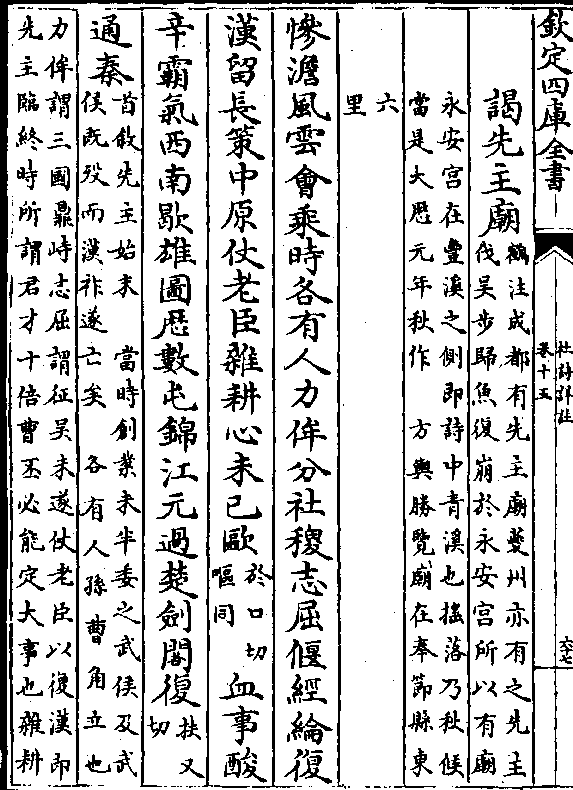 欽定四庫全書
杜詩詳註
卷十五
六七
謁先主廟
鶴注成都有先主廟夔州亦有之先主
伐吳步歸魚復崩於永安宮所以有廟
永安宮在瀼溪之側即詩中青溪也搖落乃秋候
當是大厯元年秋作 方輿勝覽廟在奉節縣東
六
里
慘澹風雲會乘時各有人力侔分社稷志屈偃經綸復
漢留長策中原仗老臣雜耕心未已歐
於口切
嘔同
血事酸
辛霸氣西南歇雄圖厯數屯錦江元過楚劍閣復
扶又
切
通秦
首敘先主始末 當時創業未半委之武侯及武
侯既歿而漢祚遂亡矣 各有人孫曹角立也
力侔謂三國鼎峙志屈謂征吳未遂仗老臣以復漢即
先主臨終時所謂君才十倍曹丕必能定大事也雜耕